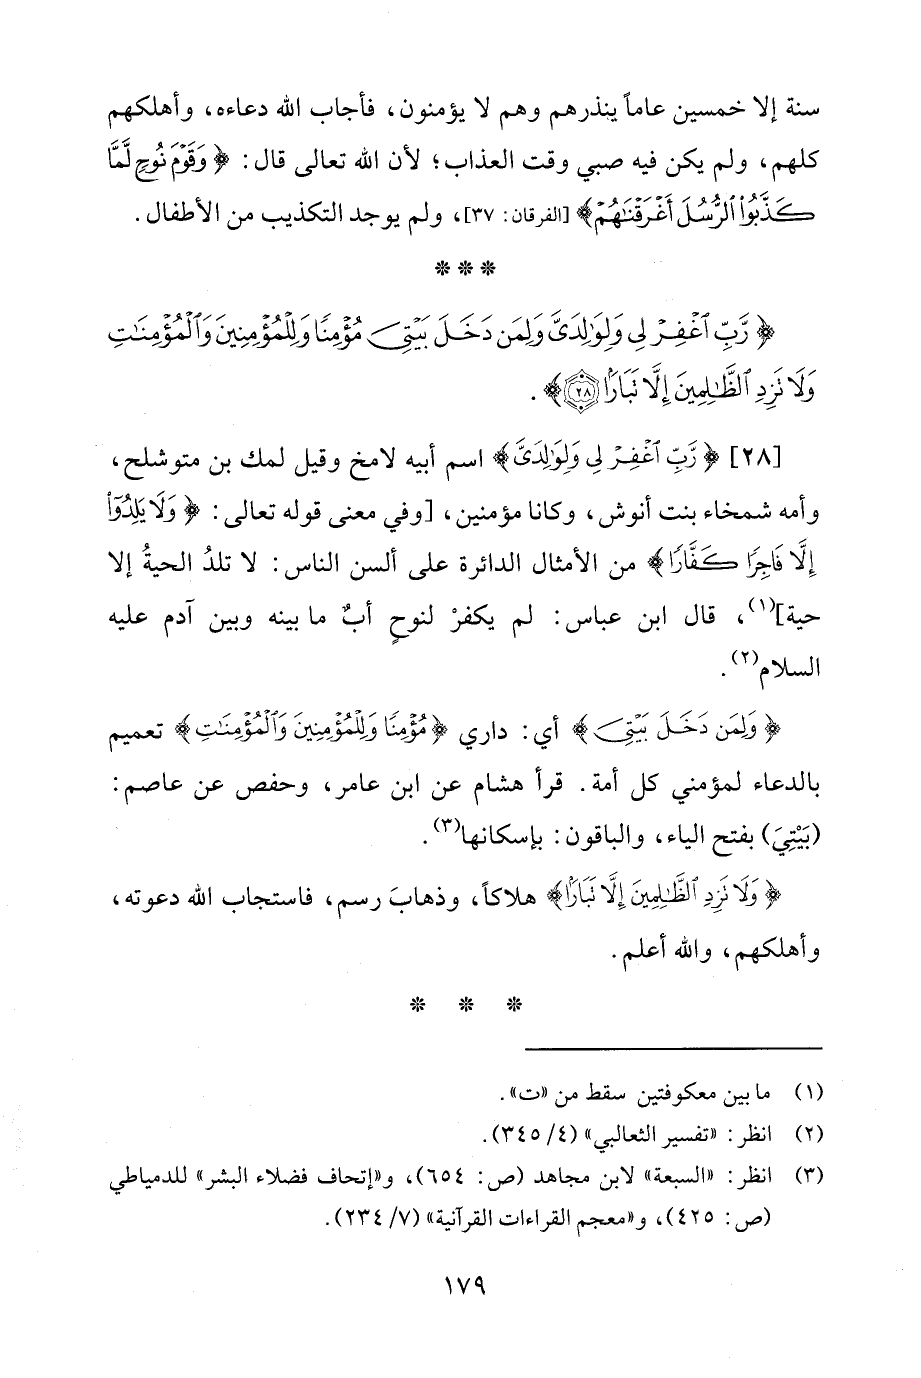 سنة إلا خمسين عاماً ينذرهم وهم لا يؤمنون، فأجاب الله دعاءه، وأهلكهم
كلهم، ولم يكن فيه صبي وقت العذاب؛ لأن الله تعالى قال: ﴿وَقَوْمَ نُوحٍ لَّمَّا
كَذَّبُوا۟ ٱلرُّسُلَ أَغْرَقْنَٰهُمْ﴾ [الفرقان: ٣٧]، ولم يوجد التكذيب من الأطفال.
* * *
﴿رَّبِّ ٱغْفِرْ لِى وَلِوَٰلِدَىَّ وَلِمَن دَخَلَ بَيْتِىَ مُؤْمِنًا وَلِلْمُؤْمِنِينَ وَٱلْمُؤْمِنَٰتِ
وَلَا تَزِدِ ٱلظَّٰلِمِينَ إِلَّا تَبَارًۢا ٢٨﴾.
[٢٨] ﴿رَّبِّ ٱغْفِرْ لِى وَلِوَٰلِدَىَّ﴾ اسم أبيه لامخ وقيل لمك بن متوشلح،
وأمه شمخاء بنت أنوش، وكانا مؤمنين، [وفي معنى قوله تعالى: ﴿وَلَا يَلِدُوٓا۟
إِلَّا فَاجِرًا كَفَّارًا﴾ من الأمثال الدائرة على ألسن الناس: لا تلدُ الحيةُ إلا
حية](١)، قال ابن عباس: لم يكفرْ لنوحٍ أبٌ ما بينه وبين آدم عليه
السلام(٢).
﴿وَلِمَن دَخَلَ بَيْتِىَ﴾ أي: داري ﴿مُؤْمِنًا وَلِلْمُؤْمِنِينَ وَٱلْمُؤْمِنَٰتِ﴾ تعميم
بالدعاء لمؤمني كل أمة. قرأ هشام عن ابن عامر، وحفص عن عاصم:
(بَيْتِيَ) بفتح الياء، والباقون: بإسكانها(٣).
﴿وَلَا تَزِدِ ٱلظَّٰلِمِينَ إِلَّا تَبَارًۢا﴾ هلاكاً، وذهابَ رسم، فاستجاب الله دعوته،
وأهلكهم، والله أعلم.
* * *
(١) ما بين معكوفتين سقط من «ت».
(٢) انظر: «تفسير الثعالبي» (٤/ ٣٤٥).
(٣) انظر: «السبعة» لابن مجاهد (ص: ٦٥٤)، و«إتحاف فضلاء البشر» للدمياطي
(ص: ٤٢٥)، و«معجم القراءات القرآنية» (٧/ ٢٣٤).
١٧٩